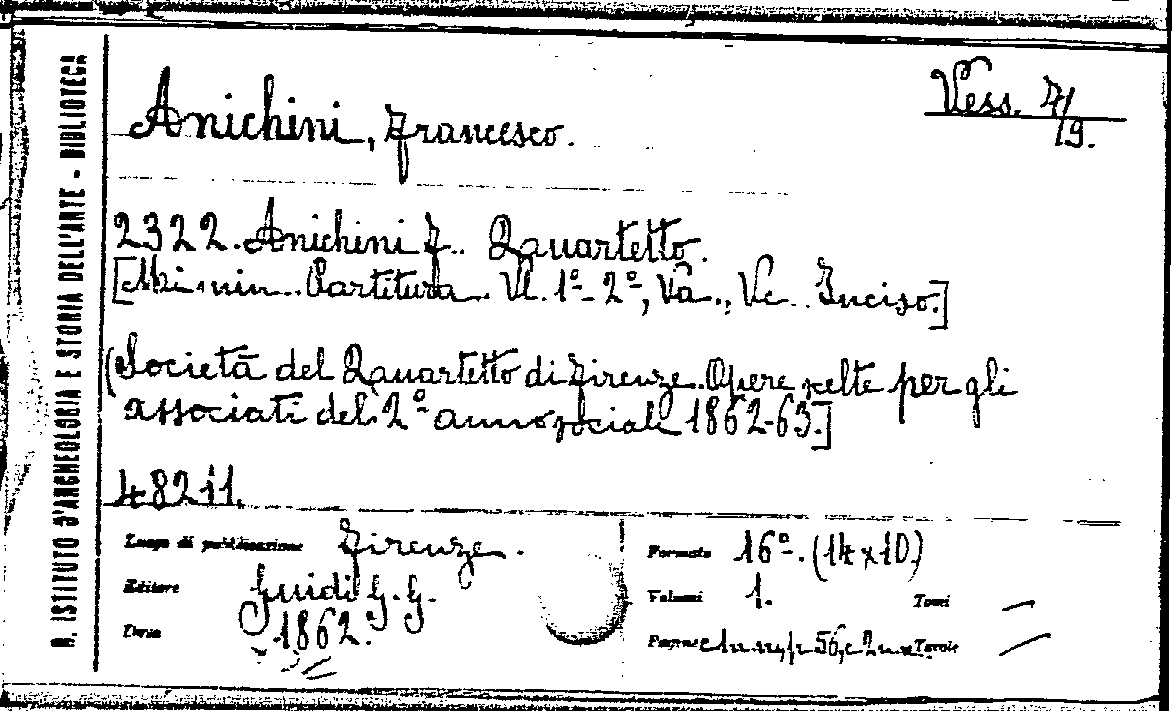 R. ISTITUTO D'ARCHEOLOGIA E STORIA DELL'ARTE - BIBLIOTECA
Vess. 7/19.
Anichini, Francesco.
2322. Anichini F. Quartetto.
[Mi min. Partitura. Vl. 1º- 2º, Va., Vc. Inciso.]
(Società del Quartetto di Firenze. Opere scelte per gli
associati del 2º anno sociale 1862-63.]
48211.
Luogo di pubblicazione Firenze.
Editore Guidi G. G.
Data 1862.
Formato 16º. (14x10)
Volumi 1. Tomi —
Pagine p 56, c 2 Tavole —